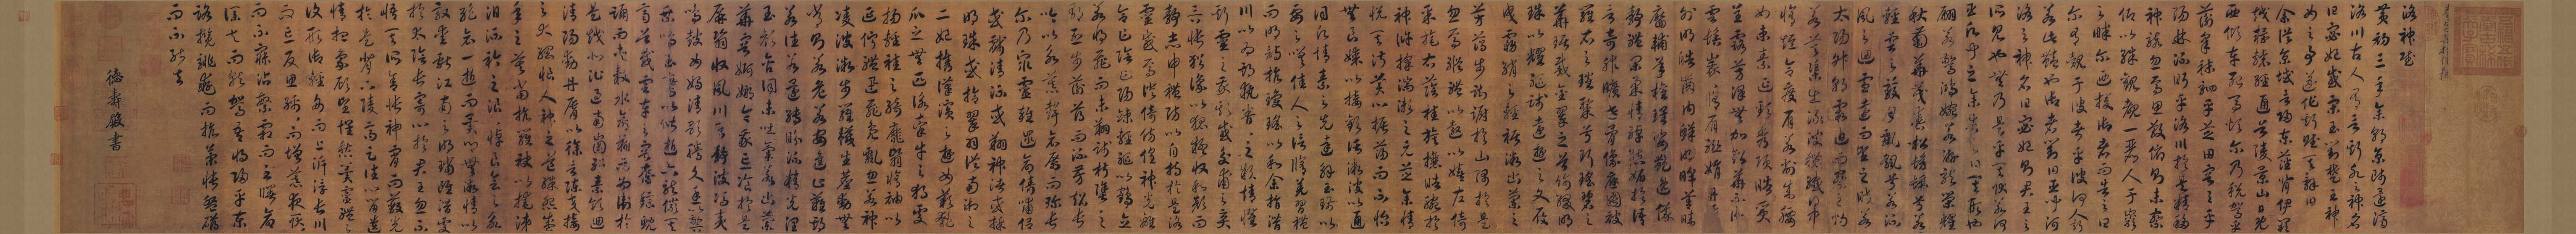 洛神賦
黃初三年余朝京師還濟
洛川古人有言斯水之神名
曰宓妃感宋玉對楚王神
女之事遂作斯賦其辭曰
余從京域言歸東藩背伊闕
越轘轅經通谷陵景山日既
西傾車殆馬煩爾乃稅駕乎
蘅皋秣駟乎芝田容與乎
陽林流眄乎洛川於是精移
神駭忽焉思散俯則未察
仰以殊觀覩一麗人于巖
之畔爾迺援御者而告之曰
爾有覿於彼者乎彼何人斯
若此之豔也御者對曰臣聞河
洛之神名曰宓妃則君王之
所見也無乃是乎其狀若何
臣願聞之余告之曰其形也
翩若驚鴻婉若游龍榮耀
秋菊華茂春松髣髴兮若
輕雲之蔽月飄颻兮若流
風之迴雪遠而望之皎若
太陽升朝霞迫而察之灼
若芙蕖出淥波穠纖得中
脩短合度肩若削成腰
如束素延頸秀項皓質
呈露芳澤無加鉛華不御
雲髻峩峩脩眉聯娟丹脣
外朗皓齒內鮮明眸善睞
靨輔承權瓌姿豔逸儀
靜體閑柔情綽態媚於語
言奇服曠世骨像應圖被
羅衣之璀粲兮珥瑤碧之
華琚戴金翠之首飾綴明
珠以耀軀踐遠遊之文履
曳霧綃之輕裾微幽蘭之
芳藹步踟躕於山隅於是
忽焉縱體以遨以嬉左倚
采旄右蔭桂旗攘皓腕於
神滸採湍瀨之玄芝余情
悅其淑美心振蕩而不怡
無良媒以接歡託微波以通
辭願誠素之先達解玉珮以
要之嗟佳人之信脩羌習禮
而明詩抗瓊珶以和余指潛
川以為期執眷眷之款情懼
斯靈之我欺感交甫之棄
言悵猶豫以狐疑收和顏而
靜志申禮防以自持於是洛
靈感焉徙倚傍偟神光離
合乍陰乍陽竦輕軀以鶴立
若將飛而未翔踐椒塗之
郁烈步蘅薄而流芳超長
吟以永慕聲哀厲而彌長
爾乃眾靈雜遝命儔嘯侶
或戲清流或翔神渚或採
明珠或拾翠羽從南湘之
二妃攜漢濱之遊女歎匏
瓜之無匹詠牽牛之獨處
揚輕袿之猗靡翳脩袖以
延佇體迅飛鳧飄忽若神
凌波微步羅韈生塵動無
常則若危若安進止難期
若往若還轉眄流精光潤
玉顏含辭未吐氣若幽蘭
華容婀娜令我忘飡於是
屏翳收風川后靜波馮夷
鳴鼓女媧清歌騰文魚以警
乘鳴玉鸞以偕逝六龍儼其
齊首載雲車之容裔鯨鯢
踊而夾轂水禽翔而為衛於
是越北沚過南岡紆素領迴
清陽動朱脣以徐言陳交接
之大綱恨人神之道殊怨盛
年之莫當抗羅袂以掩涕
淚流襟之浪浪悼良會之永
絕哀一逝而異鄉無微情以
效愛獻江南之明璫雖潛處
於太陰長寄心於君王忽不
悟其所舍悵神宵而蔽光
於是背下陵高足往心留遺
情想像顧望懷愁冀靈體之
復形御輕舟而上泝浮長川
而忘反思綿綿而增慕夜耿耿
而不寐沾繁霜而至曙命
僕夫而就駕吾將歸乎東
路攬騑轡而抗策悵盤桓
而不能去
德壽殿書